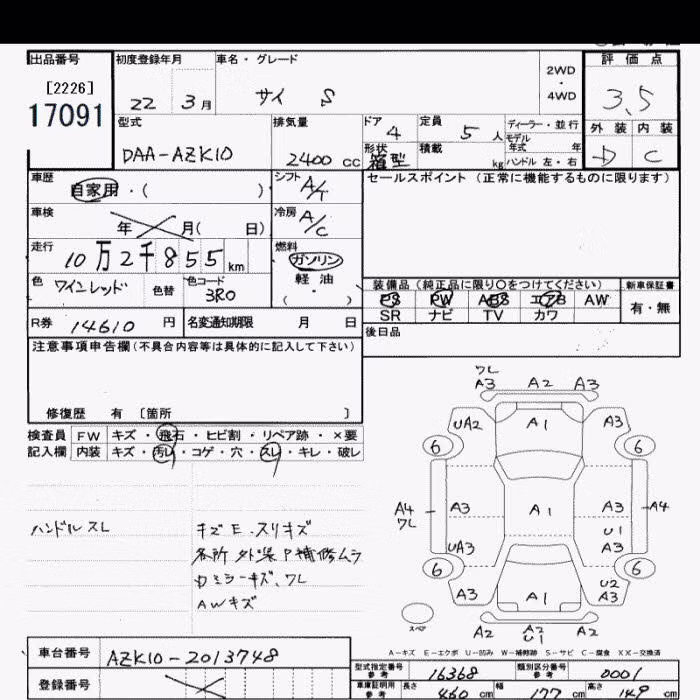 出品番号 初度登録年月 車名・グレード 評価点
[2226] 2WD
・
17091 22 3月 サイ S 4WD 3.5
外装 内装
型式 排気量 ドア 4 定員 5人 ディーラー・並行
モデル
年式 年
DAA-AZK10 2400cc 形状 箱型 積載 kg ハンドル 左・右 D C
車歴 自家用・( ) シフト A/T セールスポイント(正常に機能するものに限ります)
車検 年 月( 日) 冷房 A/C
走行 10万2千855km 燃料 ガソリン
軽油
・
( )
色 ワインレッド 色替 色コード 3R0 装備品(純正品に限り〇をつけてください) 新車保証書
PS PW ABS エアB AW 有・無
SR ナビ TV カワ
R券 14610円 名変通知期限 月 日 後日品
注意事項申告欄(不具合内容等は具体的に記入して下さい)
修復歴 有 〔箇所 〕
検査員 FW キズ・飛石・ヒビ割・リペア跡・×要
記入欄 内装 キズ・汚レ・コゲ・穴・スレ・キレ・破レ
ハンドルスレ キズE.スリキズ
各所 外装P補修ムラ
ドミラーキズ、ワレ
AWキズ
ワレ
A3 A2 A3
UA2 A1 A3
6 6
A4 A3 A1 A3 A4
ワレ U1
UA3 A3
6 6
U2
A3 A1 A3
スペア A2 A2 A2
U1
A-キズ E-エクボ U-凹み W-補修跡 S-サビ C-腐食 XX-交換済
車台番号 AZK10-2013748 型式指定番号 参考 16368 類別区分番号 参考 0001
登録番号 車庫証明用 参考 長さ 460cm 幅 177cm 高さ 149cm